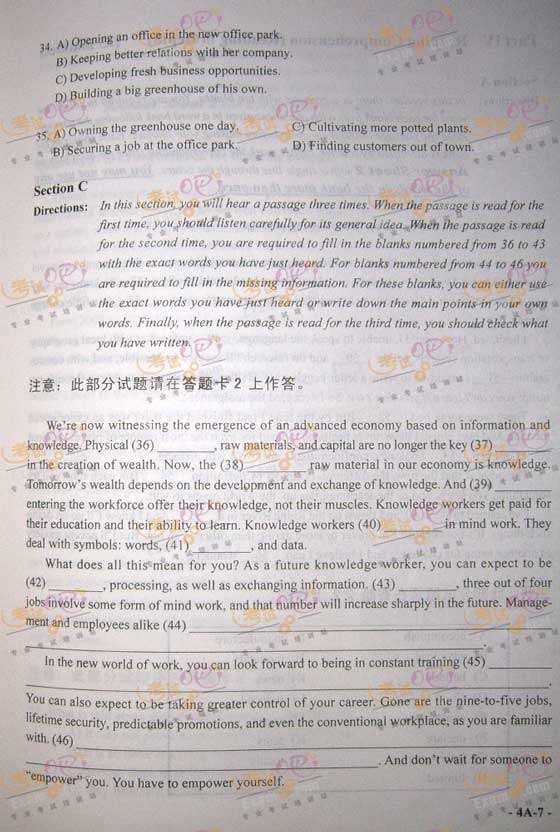 34. A) Opening an office in the new office park.
B) Keeping better relations with her company.
C) Developing fresh business opportunities.
D) Building a big greenhouse of his own.
35. A) Owning the greenhouse one day. C) Cultivating more potted plants.
B) Securing a job at the office park. D) Finding customers out of town.
Section C
Directions: In this section, you will hear a passage three times. When the passage is read for the
first time, you should listen carefully for its general idea. When the passage is read
for the second time, you are required to fill in the blanks numbered from 36 to 43
with the exact words you have just heard. For blanks numbered from 44 to 46 you
are required to fill in the missing information. For these blanks, you can either use
the exact words you have just heard or write down the main points in your own
words. Finally, when the passage is read for the third time, you should check what
you have written.
注意：此部分试题请在答题卡 2 上作答。
We're now witnessing the emergence of an advanced economy based on information and
knowledge. Physical (36) ________, raw materials, and capital are no longer the key (37) ________
in the creation of wealth. Now, the (38) ________ raw material in our economy is knowledge.
Tomorrow's wealth depends on the development and exchange of knowledge. And (39) ________
entering the workforce offer their knowledge, not their muscles. Knowledge workers get paid for
their education and their ability to learn. Knowledge workers (40) ________ in mind work. They
deal with symbols: words, (41) ________, and data.
What does all this mean for you? As a future knowledge worker, you can expect to be
(42) ________, processing, as well as exchanging information. (43) ________, three out of four
jobs involve some form of mind work, and that number will increase sharply in the future. Manage-
ment and employees alike (44) ________
________.
In the new world of work, you can look forward to being in constant training (45) ________
________.
You can also expect to be taking greater control of your career. Gone are the nine-to-five jobs,
lifetime security, predictable promotions, and even the conventional workplace, as you are familiar
with. (46) ________
________. And don't wait for someone to
"empower" you. You have to empower yourself.
- 4A-7 -